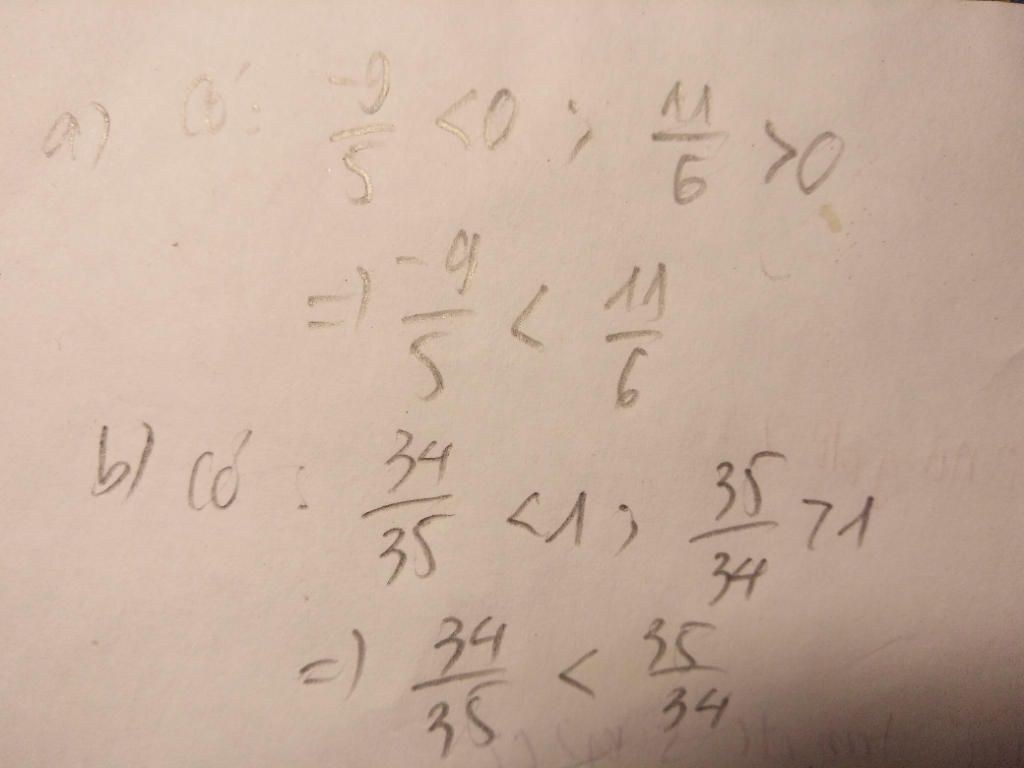 a) Có: -9/5 < 0 ; 11/6 > 0
=) -9/5 < 11/6
b) Có : 34/35 < 1 ; 35/34 > 1
=) 34/35 < 35/34